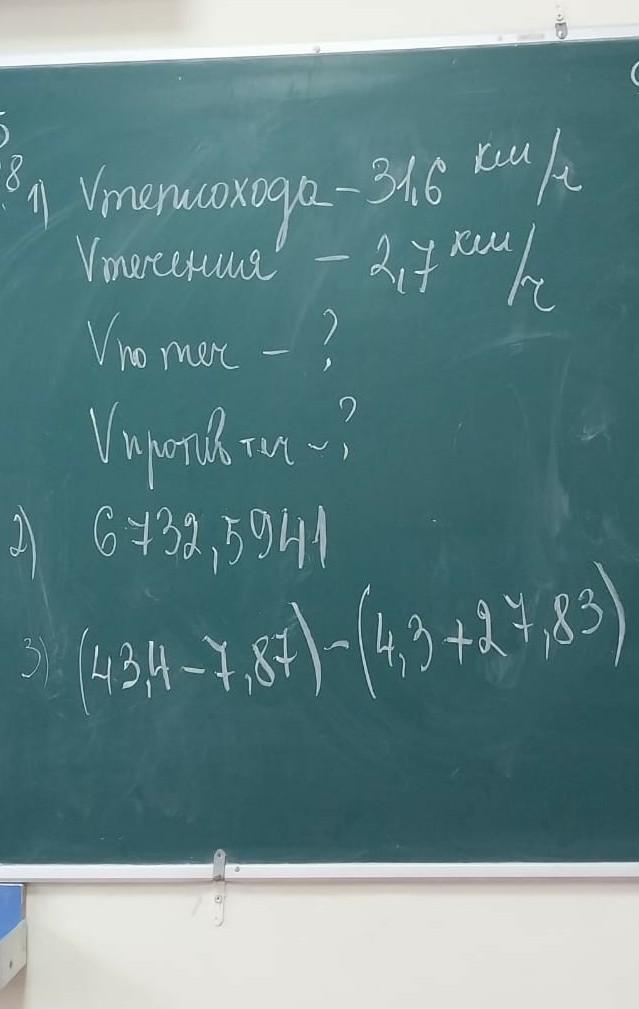 5
8
1) Vтеплохода – 31,6 км/ч
Vтечения – 2,7 км/ч
Vпо теч – ?
Vпротив теч – ?
2) 6732,5941
3) (43,4 – 7,87) – (4,3 + 27,83)